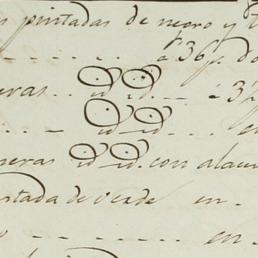 s pintadas de negro y
- - - - - - - á 36 p.s do
eras . . id id. - - á 3
- - - - id id . . . en
neras id id. con alam
ntada de verde en .
- - - - - - - en .